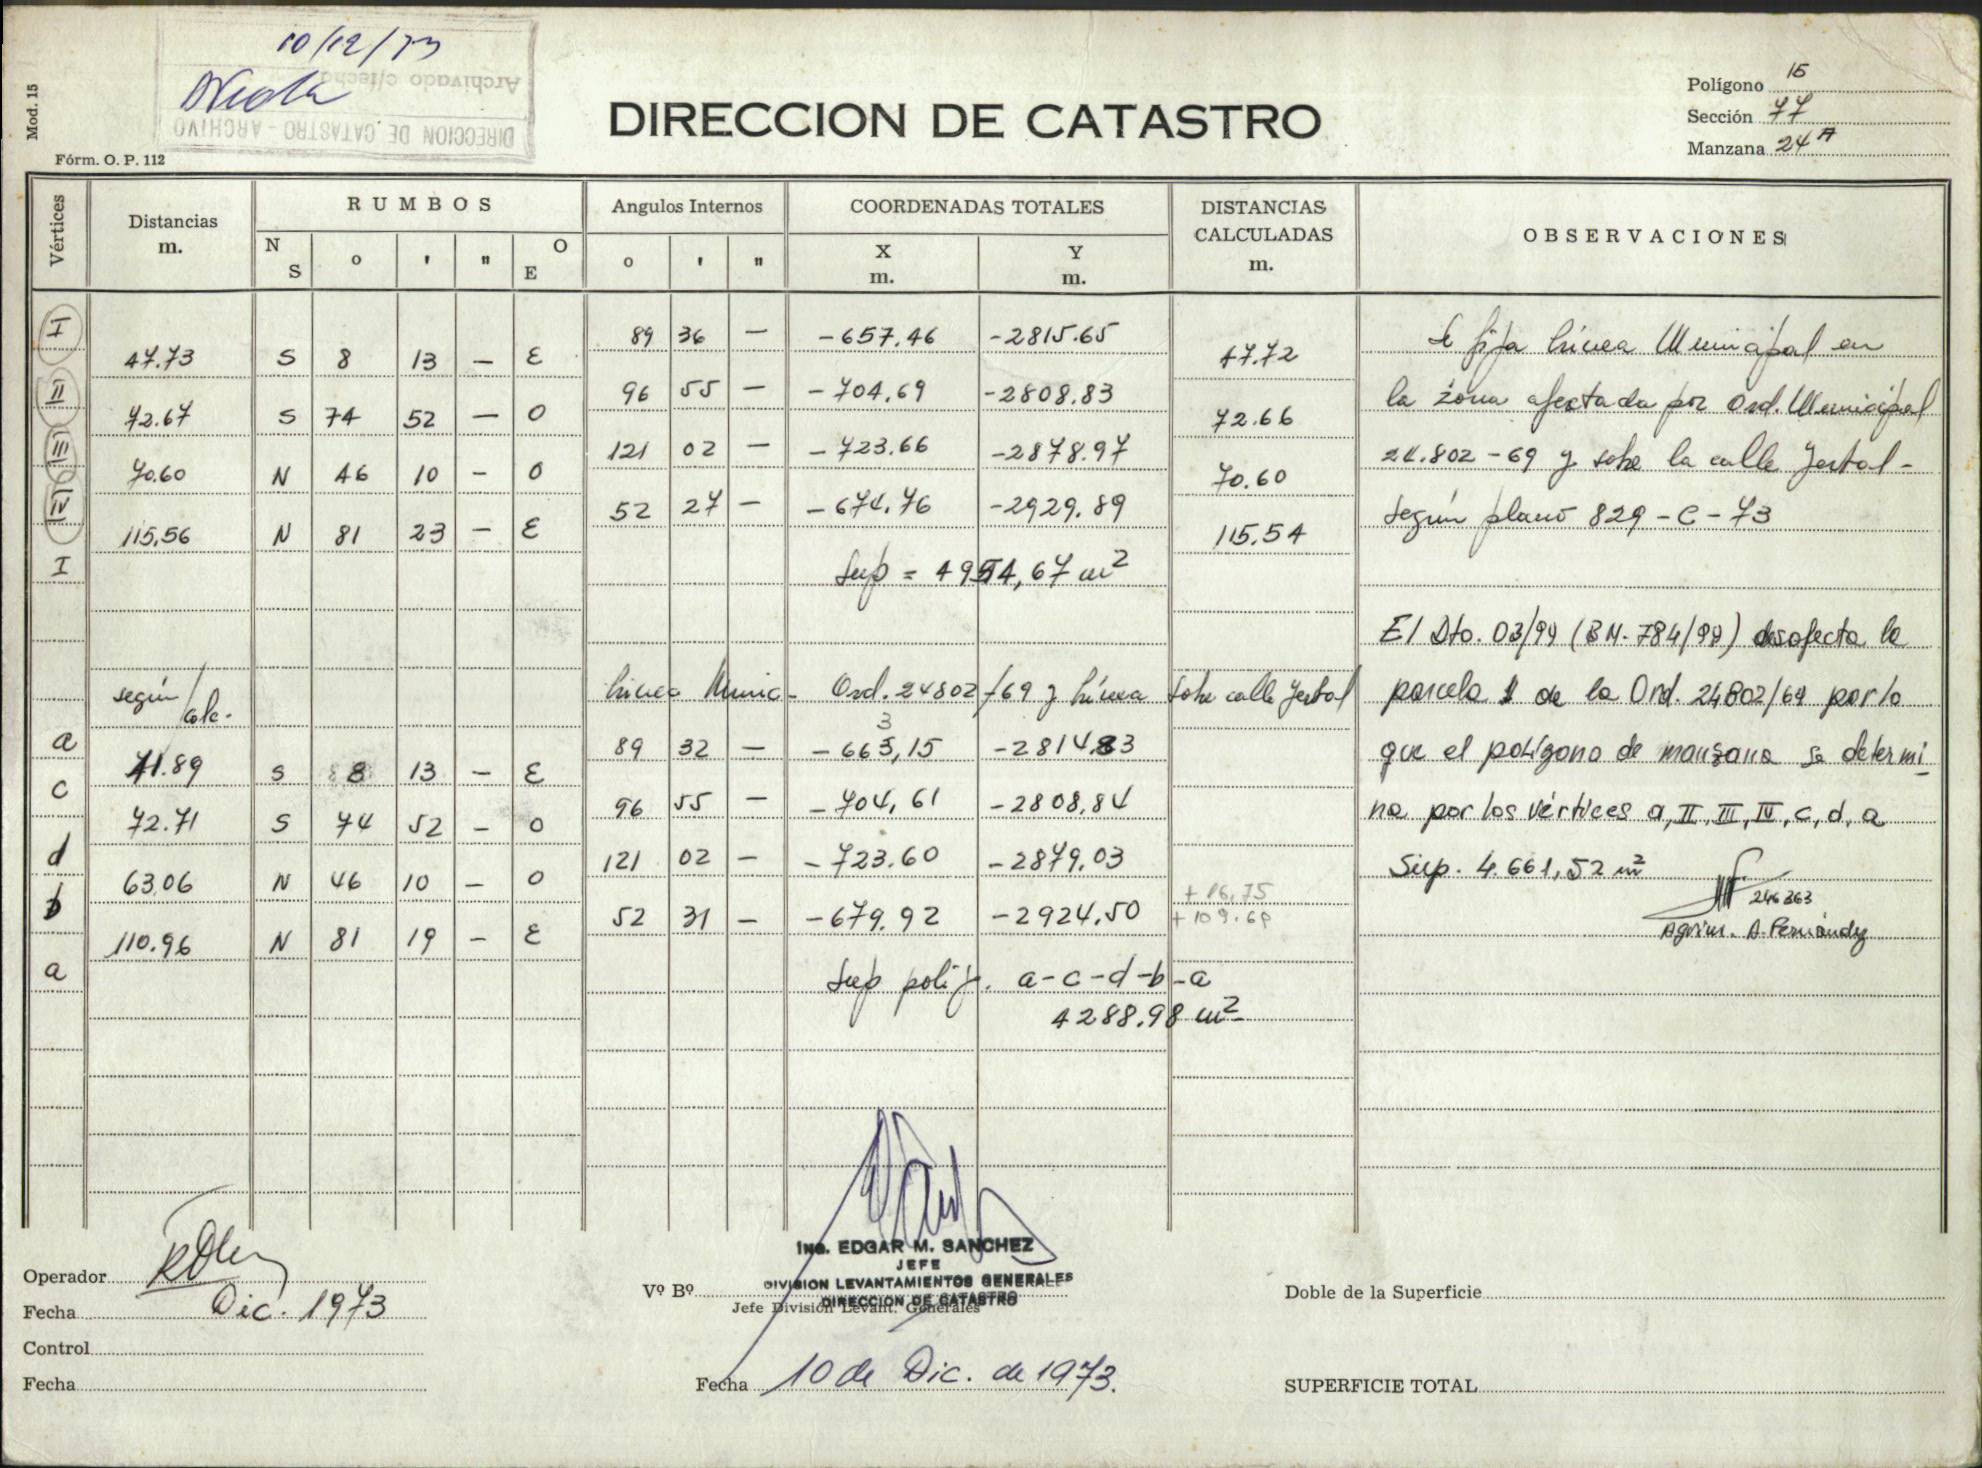 10/12/73
Archivado c/fecha
DIRECCION DE CATASTRO - ARCHIVO
Mod. 15
Fórm. O. P. 112
DIRECCION DE CATASTRO
Polígono 15
Sección 77
Manzana 24 A
Vértices
Distancias
m.
RUMBOS
N S
o ' "
O E
Angulos Internos
o ' "
COORDENADAS TOTALES
X
m.
Y
m.
DISTANCIAS
CALCULADAS
m.
OBSERVACIONES
I 89 36 — -657.46 -2815.65
47.73 S 8 13 — E 47.72
II 96 55 — -704.69 -2808.83
72.67 S 74 52 — O 72.66
III 121 02 — -723.66 -2878.97
70.60 N 46 10 — O 70.60
IV 52 27 — -674.76 -2929.89
115,56 N 81 23 — E 115.54
I
Sup = 4954,67 m2
Se fija línea Municipal en
la zona afectada por Ord. Municipal
24.802-69 y sobre la calle Yerbal-
según plano 829-C-73
según
calc.
Línea Munic- Ord. 24802/69 y línea sobre calle Yerbal
a 89 32 — -663,15 3 -2814,83
41.89 S 8 13 — E
c 96 55 — -704,61 -2808,84
72.71 S 74 52 — O
d 121 02 — -723.60 -2879,03
63,06 N 46 10 — O
b 52 31 — -679.92 -2924.50
110.96 N 81 19 — E
a
+16,75
+109.68
Sup políg. a-c-d-b-a
4288.98 m2
El Dto. 03/99 (BM-784/99) desafecta la
parcela 1 de la Ord. 24802/69 por lo
que el polígono de manzana se determi
na por los vértices a, II, III, IV, c, d, a
Sup. 4.661,52 m2
246363
Agrim. A. Fernández
Operador
Fecha Dic. 1973
Control
Fecha
Vº Bº
Ing. EDGAR M. SANCHEZ
JEFE
DIVISION LEVANTAMIENTOS GENERALES
DIRECCION DE CATASTRO
Jefe División Levant. Generales
Fecha 10 de Dic. de 1973.
Doble de la Superficie
SUPERFICIE TOTAL